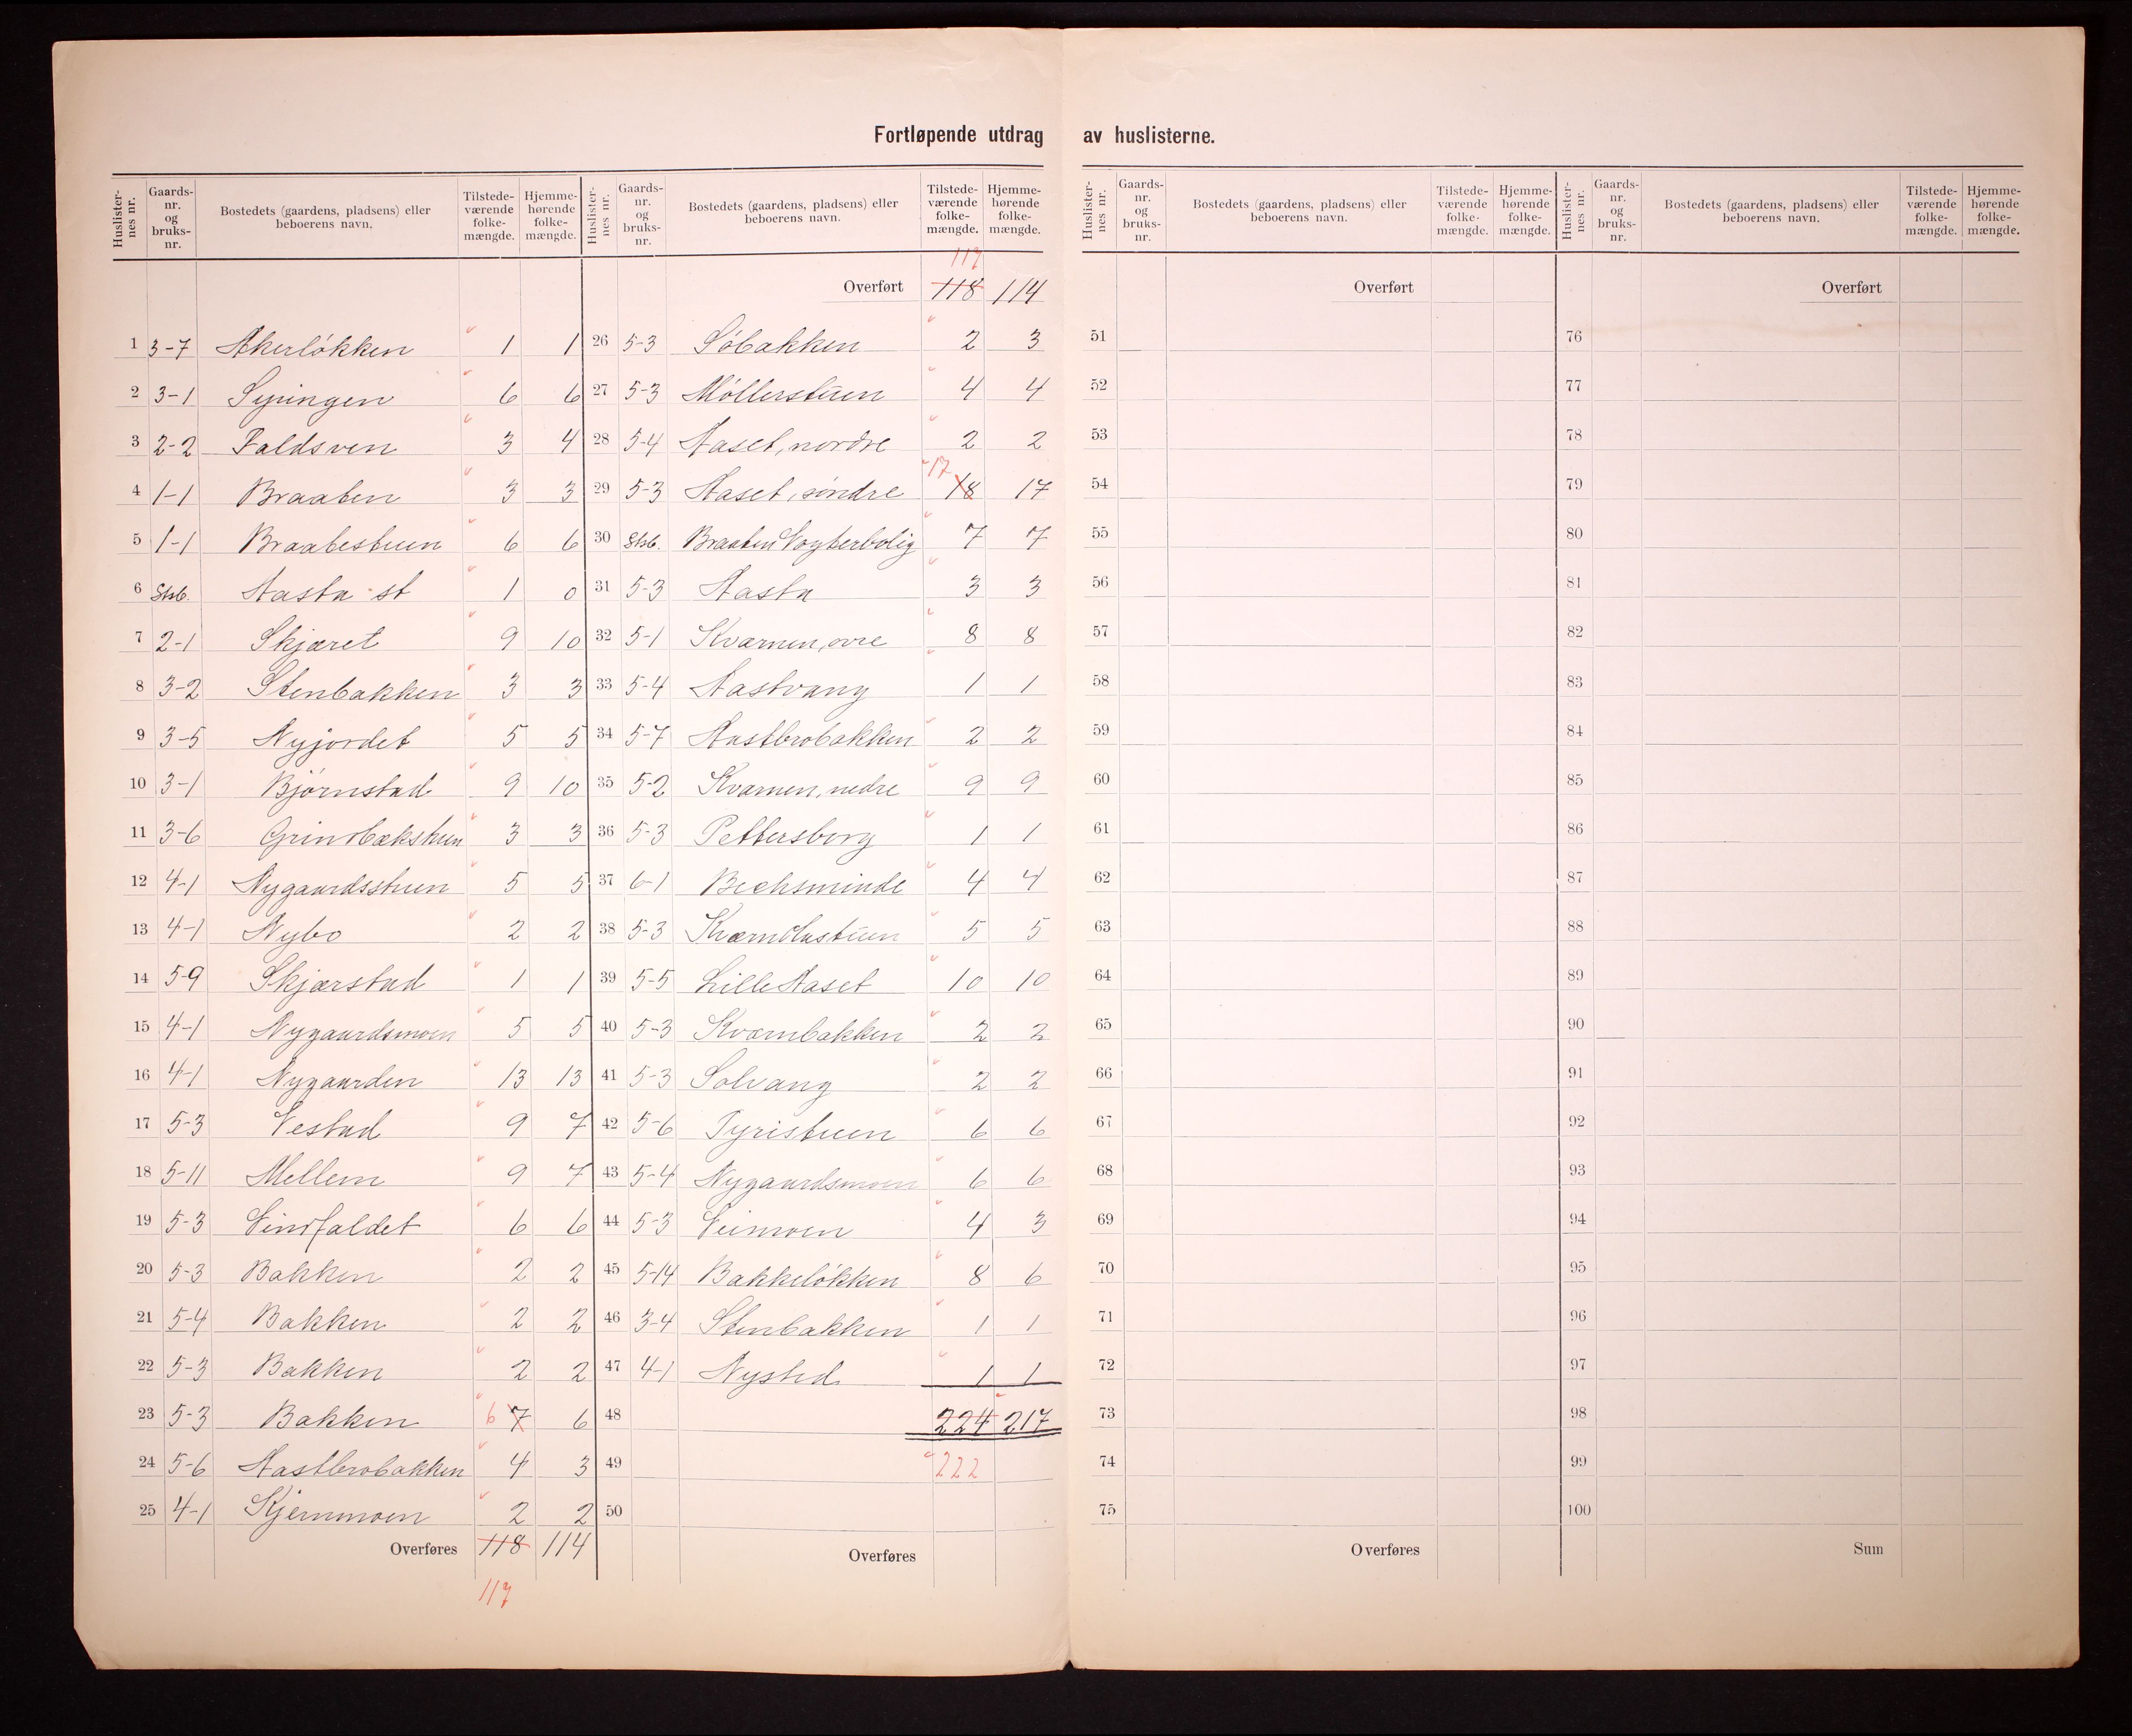 Fortløpende utdrag av huslisterne.
Huslisternes nr. Gaards-nr. og bruks-nr. Bostedets (gaardens, pladsens) eller beboerens navn. Tilstedeværende folkemængde. Hjemmehørende folkemængde.
1 3-7 Akerløkken 1 1
2 3-1 Syringen 6 6
3 2-2 Faldsven 3 4
4 1-1 Braaten 3 3
5 1-1 Braatestuen 6 6
6 Stsb. Aasta st 1 0
7 2-1 Skjæret 9 10
8 3-2 Stenbakken 3 3
9 3-5 Nyjordet 5 5
10 3-1 Bjørnstad 9 10
11 3-6 Grindbækstuen 3 3
12 4-1 Nygaardsstuen 5 5
13 4-1 Nybo 2 2
14 5-9 Skjærstad 1 1
15 4-1 Nygaardsmoen 5 5
16 4-1 Nygaarden 13 13
17 5-3 Vestad 9 7
18 5-11 Mellem 9 7
19 5-3 Vindfaldet 6 6
20 5-3 Bakken 2 2
21 5-4 Bakken 2 2
22 5-3 Bakken 2 2
23 5-3 Bakken 6 7 6
24 5-6 Aastbrobakken 4 3
25 4-1 Kjernmoen 2 2
Overføres 118 114
117
Huslisternes nr. Gaards-nr. og bruks-nr. Bostedets (gaardens, pladsens) eller beboerens navn. Tilstedeværende folkemængde. Hjemmehørende folkemængde.
117
Overført 118 114
26 5-3 Søbakken 2 3
27 5-3 Møllerstuen 4 4
28 5-4 Aaset, nordre 2 2
29 5-3 Aaset, søndre 17 18 17
30 Stsb. Braaten Vogterbolig 7 7
31 5-3 Aasta 3 3
32 5-1 Kvarnen, øvre 8 8
33 5-4 Aastvang 1 1
34 5-7 Aastbrobakken 2 2
35 5-2 Kvarnen, nedre 9 9
36 5-3 Pettersborg 1 1
37 6-1 Bechsminde 4 4
38 5-3 5 5
39 5-5 Lille Aaset 10 10
40 5-3 Kværnbakken 2 2
41 5-3 Solvang 2 2
42 5-6 Tyristuen 6 6
43 5-4 Nygaardsmoen 6 6
44 5-3 Veimoen 4 3
45 5-14 Bakkeløkken 8 6
46 3-4 Stenbakken 1 1
47 4-1 Nysted 1 1
48 224 217
49 222
50
Overføres
Huslisternes nr. Gaards-nr. og bruks-nr. Bostedets (gaardens, pladsens) eller beboerens navn. Tilstedeværende folkemængde. Hjemmehørende folkemængde.
Overført
51
52
53
54
55
56
57
58
59
60
61
62
63
64
65
66
67
68
69
70
71
72
73
74
75
Overføres
Huslisternes nr. Gaards-nr. og bruks-nr. Bostedets (gaardens, pladsens) eller beboerens navn. Tilstedeværende folkemængde. Hjemmehørende folkemængde.
Overført
76
77
78
79
80
81
82
83
84
85
86
87
88
89
90
91
92
93
94
95
96
97
98
99
100
Sum